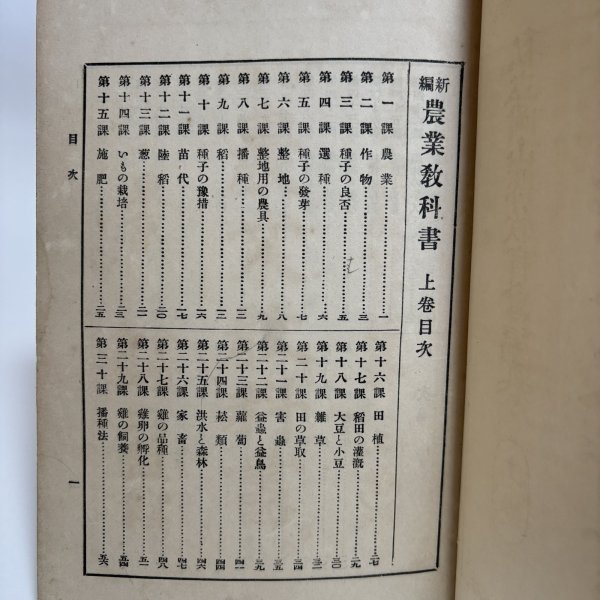 新編 農業教科書 上卷目次
第一課 農業 一
第二課 作物 三
第三課 種子の良否 五
第四課 選種 六
第五課 種子の發芽 七
第六課 整地 八
第七課 整地用の農具 九
第八課 播種 一二
第九課 稻 一三
第十課 種子の豫措 一六
第十一課 苗代 一七
第十二課 陸稻 二〇
第十三課 葱 二一
第十四課 いもの栽培 二三
第十五課 施肥 二五
第十六課 田植 二七
第十七課 稻田の灌漑 二九
第十八課 大豆と小豆 三〇
第十九課 雜草 三二
第二十課 田の草取 三四
第二十一課 害蟲 三五
第二十二課 益蟲と益鳥 三九
第二十三課 蘿蔔 四二
第二十四課 菘類 四四
第二十五課 洪水と森林 四六
第二十六課 家畜 四七
第二十七課 雞の品種 四八
第二十八課 雞卵の孵化 五一
第二十九課 雞の飼養 五四
第三十課 播種法 五六
目次
一